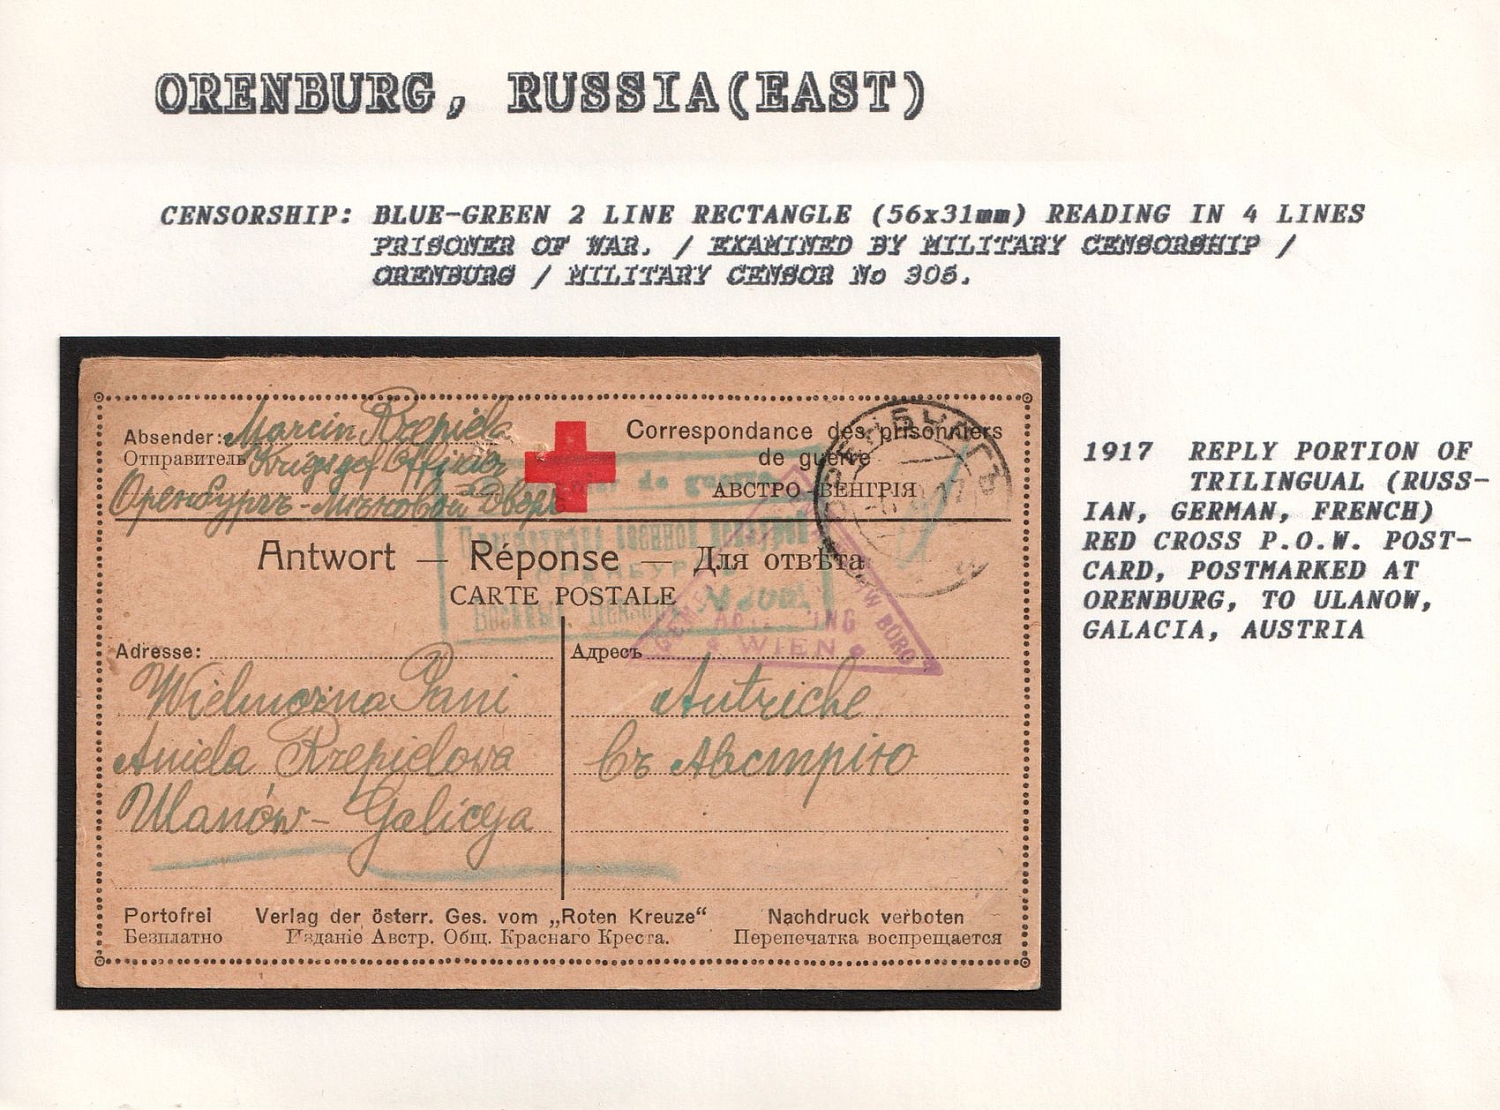 ORENBURG, RUSSIA(EAST)
CENSORSHIP: BLUE-GREEN 2 LINE RECTANGLE (56x31mm) READING IN 4 LINES
PRISONER OF WAR. / EXAMINED BY MILITARY CENSORSHIP /
ORENBURG / MILITARY CENSOR No 305.
Absender: Marcin Rzepiela
Отправитель Kriegsgef. Offizier
Оренбургъ - Мѣновой Дворъ
Correspondance des prisonniers
de guerre
АВСТРО ВЕНГРІЯ
Antwort — Réponse — Для отвѣта
CARTE POSTALE
WIEN
Adresse:
Wielmożna Pani
Aniela Rzepielowa
Ulanów - Galicya
Адресъ
Autriche
Въ Австрію
Portofrei Verlag der österr. Ges. vom „Roten Kreuze“ Nachdruck verboten
Безплатно Изданіе Австр. Общ. Краснаго Креста. Перепечатка воспрещается
1917 REPLY PORTION OF
TRILINGUAL (RUSS-
IAN, GERMAN, FRENCH)
RED CROSS P.O.W. POST-
CARD, POSTMARKED AT
ORENBURG, TO ULANOW,
GALACIA, AUSTRIA